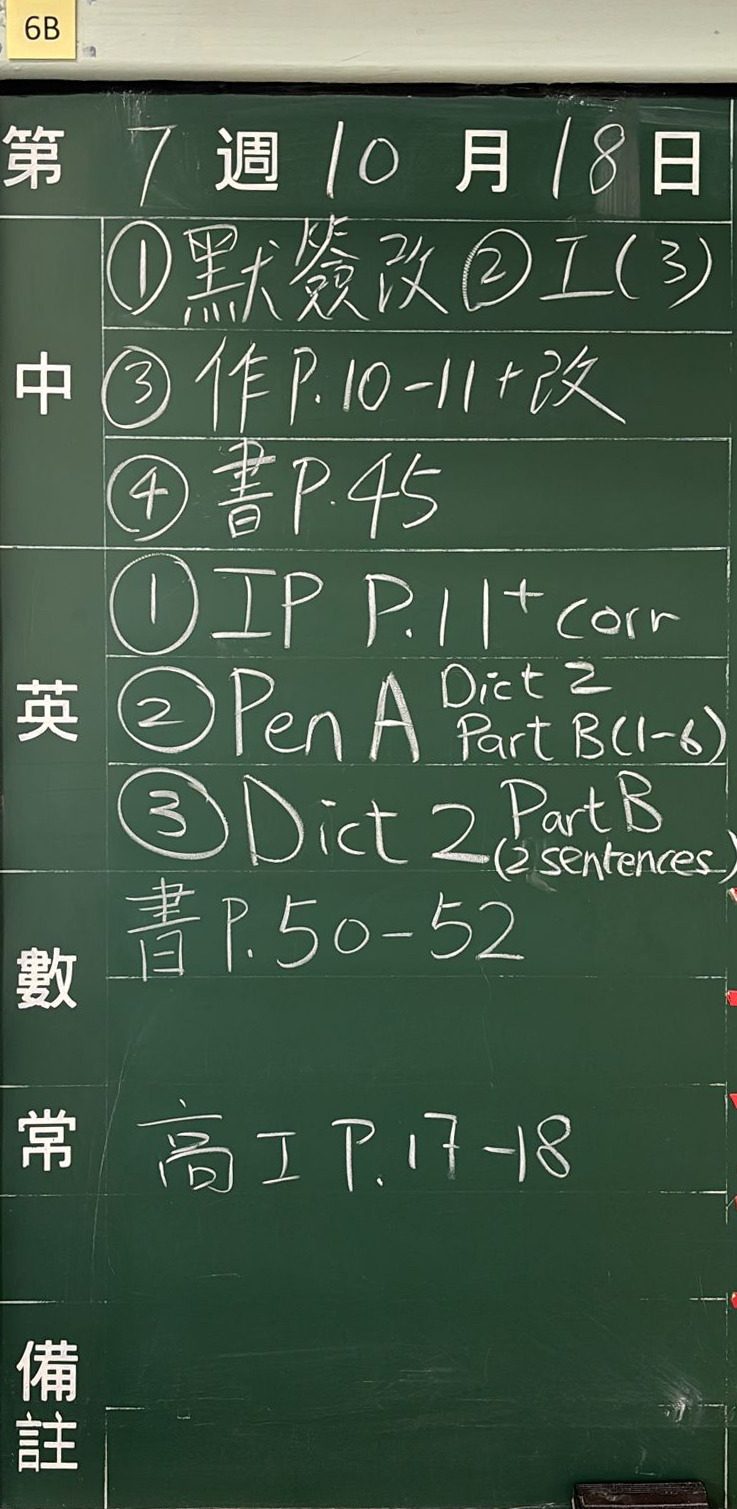 6B
第 7 週 10 月 18 日
中
①默簽改 ②工(3)
③作P.10-11+改
④書P.45
英
①IP P.11+corr
②Pen A Dict 2
Part B(1-6)
③Dict 2 Part B
(2sentences)
數
書P.50-52
常
高工P.17-18
備註